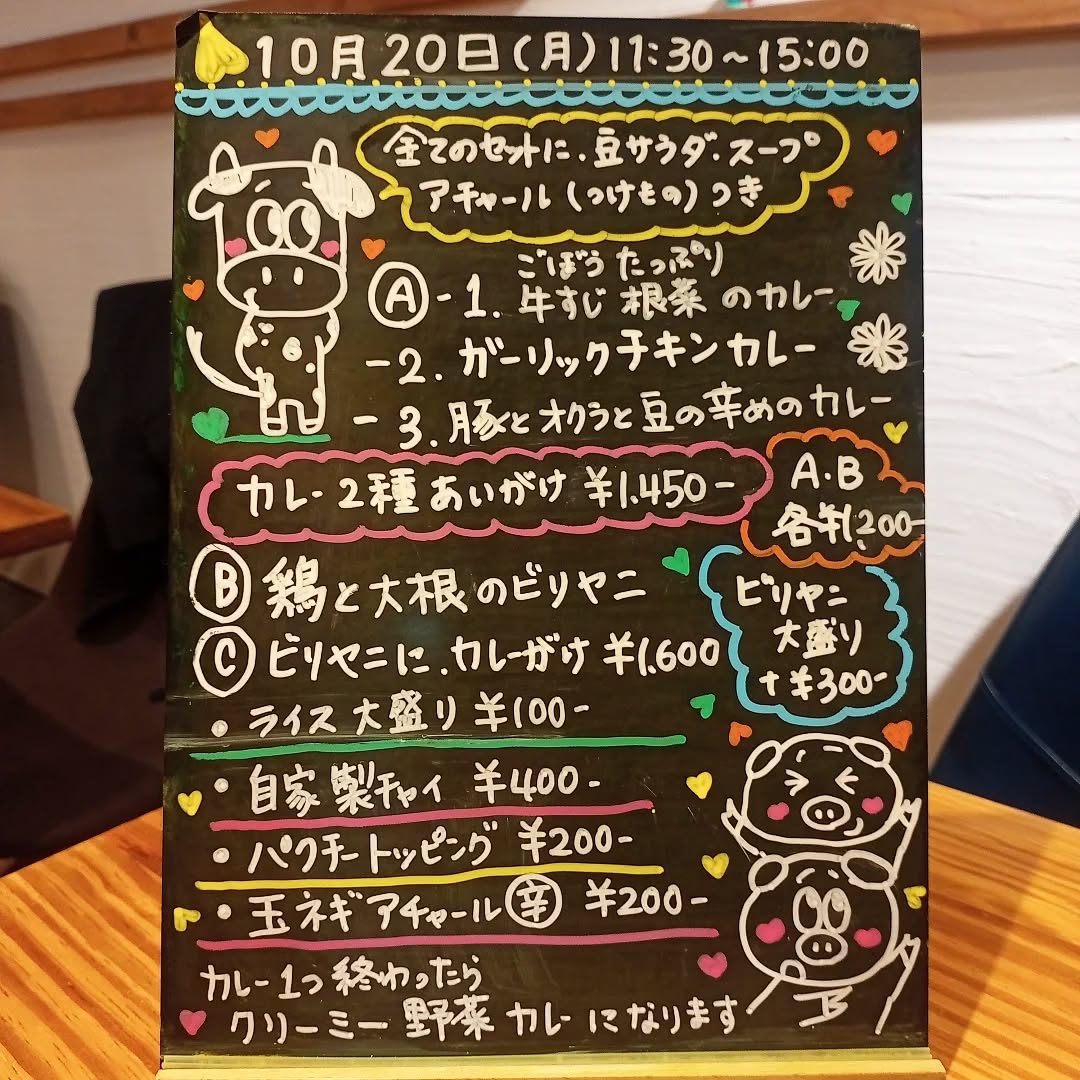 10月20日(月)11:30~15:00
全てのセットに、豆サラダ、スープ
アチャール(つけもの)つき
ごぼうたっぷり
Ⓐ-1. 牛すじ根菜のカレー
-2. ガーリックチキンカレー
-3. 豚とオクラと豆の辛めのカレー
カレー2種あいがけ ¥1.450-
A.B
各¥1,200-
Ⓑ 鶏と大根のビリヤニ
Ⓒ ビリヤニに、カレーがけ ¥1.600
ビリヤニ
大盛り
+¥300-
・ライス大盛り ¥100-
・自家製チャイ ¥400-
・パクチートッピング ¥200-
・玉ネギアチャール㊛ ¥200-
カレー1つ終わったら
クリーミー野菜カレーになります